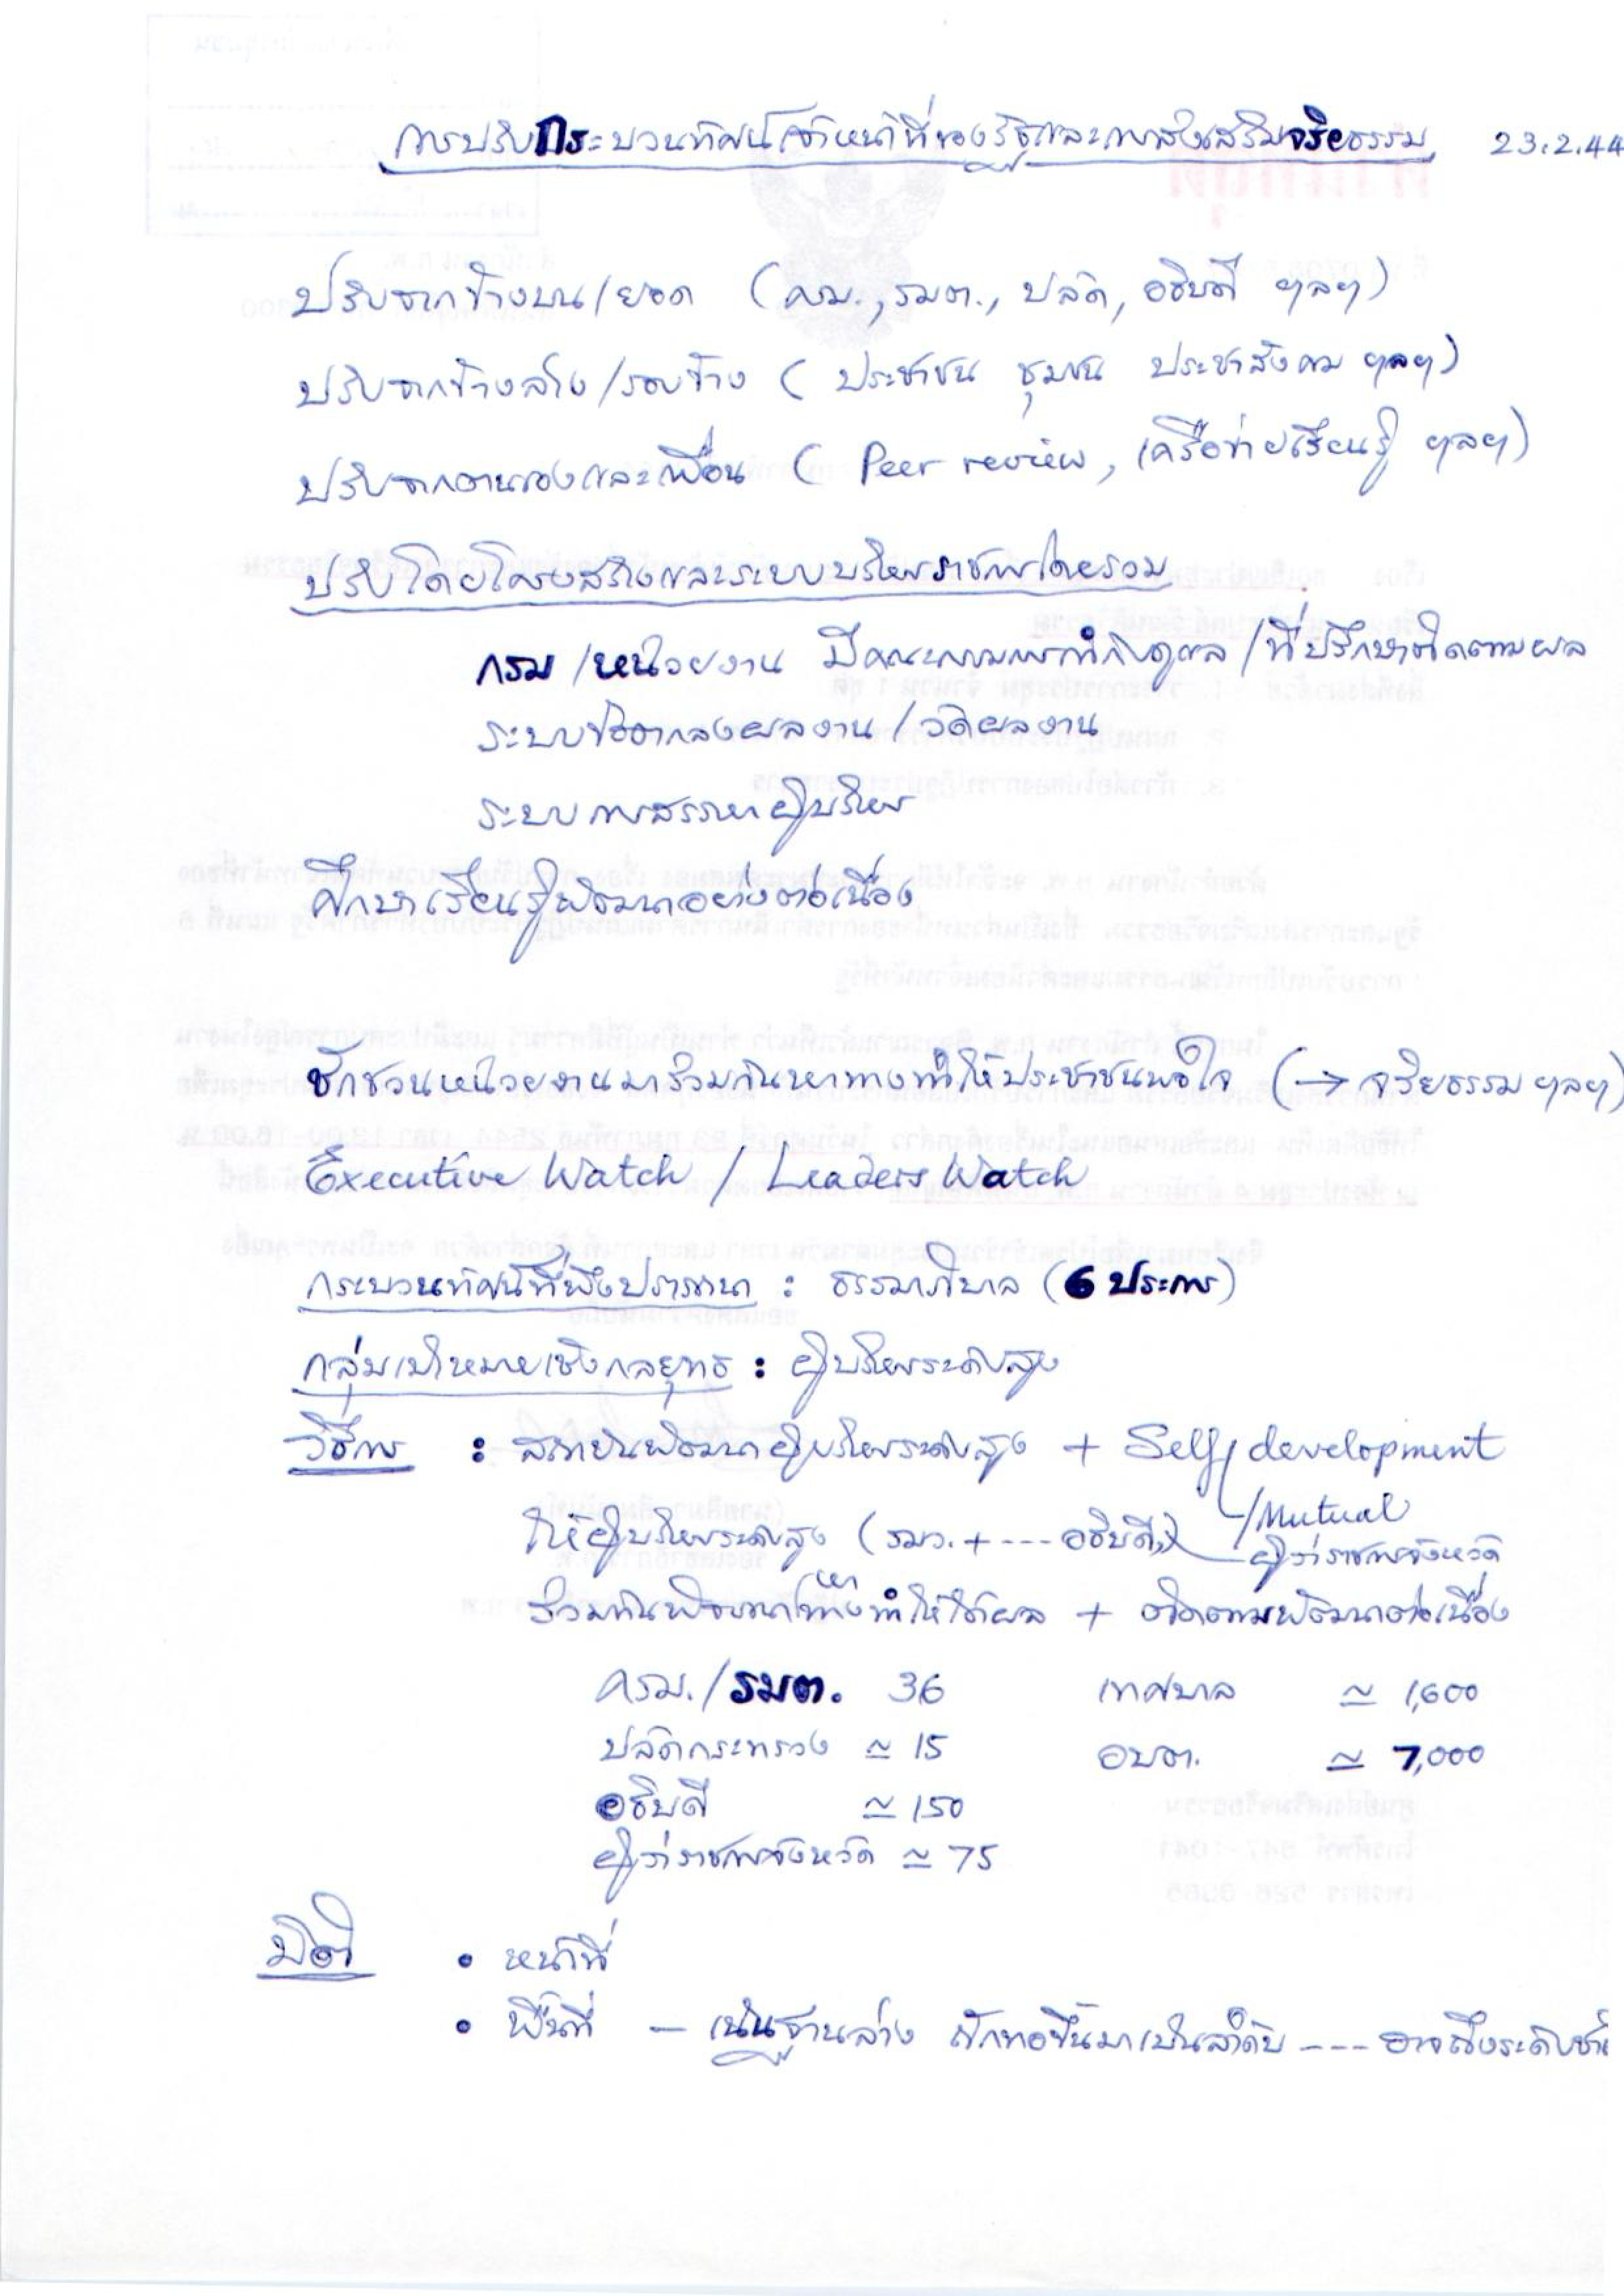 การปรับกระบวนทัศน์เจ้าหน้าที่ของรัฐและการส่งเสริมจริยธรรม 23.2.44
ปรับจากข้างบน/ยอด (ครม., รมต., ปลัด, อธิบดี ฯลฯ)
ปรับจากข้างล่าง/รอบข้าง (ประชาชน ชุมชน ประชาสังคม ฯลฯ)
ปรับจากตนเองและเพื่อน (Peer review, เครือข่ายเรียนรู้ ฯลฯ)
ปรับโดยโครงสร้างและระบบบริหารราชการโดยรวม
กรม/หน่วยงาน มีคณะกรรมการกำกับดูแล/ที่ปรึกษาติดตามผล
ระบบข้อตกลงผลงาน/วัดผลงาน
ระบบการสรรหาผู้บริหาร
ศึกษาเรียนรู้พัฒนาอย่างต่อเนื่อง
ชักชวนหน่วยงานมาร่วมกันหาทางทำให้ประชาชนพอใจ (→ จริยธรรม ฯลฯ)
Executive Watch / Leaders Watch
กระบวนทัศน์ที่พึงปรารถนา : ธรรมาภิบาล (6 ประการ)
กลุ่มเป้าหมายเชิงกลยุทธ : ผู้บริหารระดับสูง
วิธีการ : สถาบันพัฒนาผู้บริหารระดับสูง + Self development
/Mutual
ให้ผู้บริหารระดับสูง (รมว. + --- อธิบดี,) ผู้ว่าราชการจังหวัด
ร่วมกันพิจารณาหาทางทำให้ได้ผล + ติดตามพัฒนาต่อเนื่อง
ครม./รมต. 36 เทศบาล ≃ 1,600
ปลัดกระทรวง ≃ 15 อบต. ≃ 7,000
อธิบดี ≃ 150
ผู้ว่าราชการจังหวัด ≃ 75
มิติ • หน้าที่
• พื้นที่ — เน้นฐานล่าง ถักทอขึ้นมาเป็นลำดับ --- อาจถึงระดับชาติ